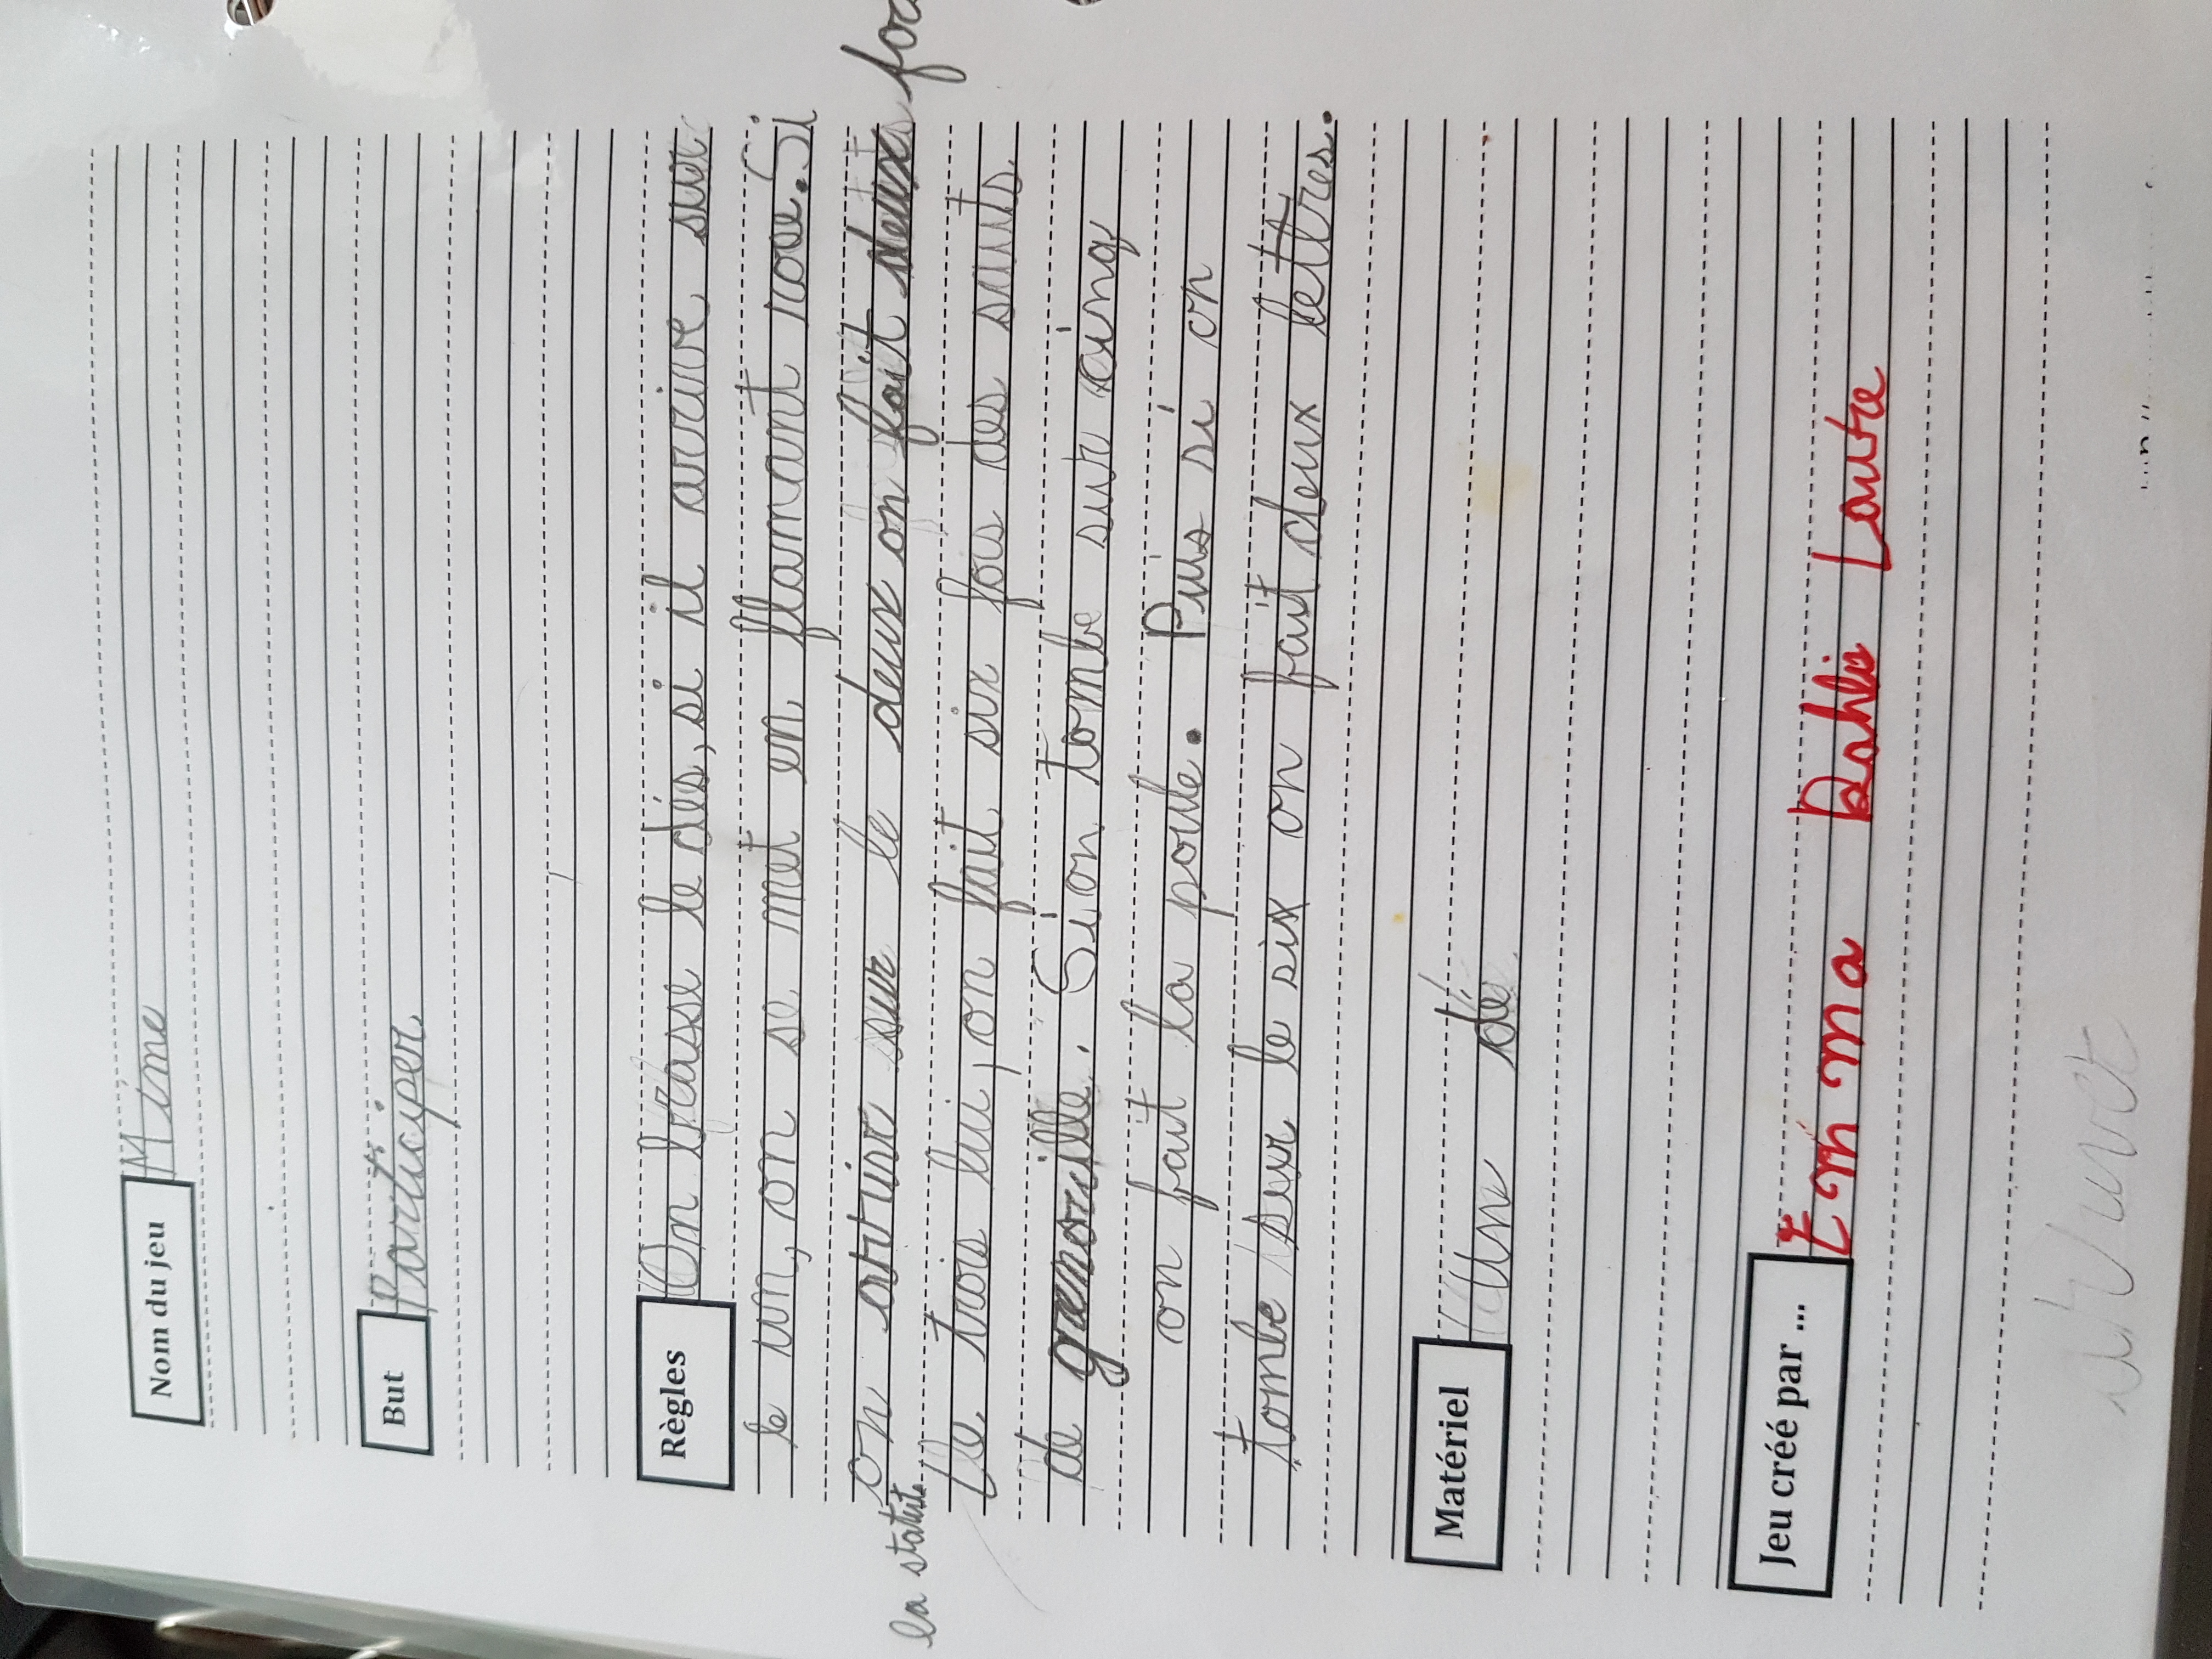 Nom du jeu Mime
But Participer
Règles On brasse le dés, si il arrive sur
le un, on se met en flamant rose. Si
on arrive sur le deux on fait deux
la statut
Le trois lui, on fait six fois des sauts
de grenouille. Si on tombe sur cinq
on fait la poule. Puis si on
tombe sur le six on fait deux lettres.
Matériel Un dé
Jeu créé par ... Emma Dahlia Loutre